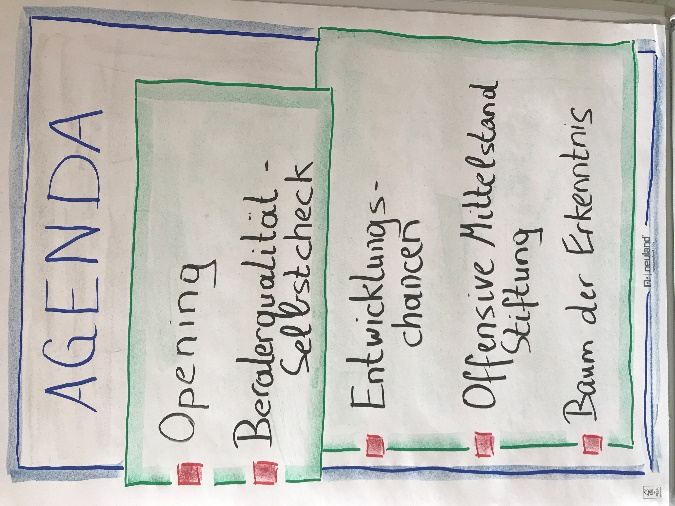 AGENDA
Opening
Beraterqualität -
Selbstcheck
Entwicklungs-
chancen
Offensive Mittelstand
Stiftung
Baum der Erkenntnis
neuland